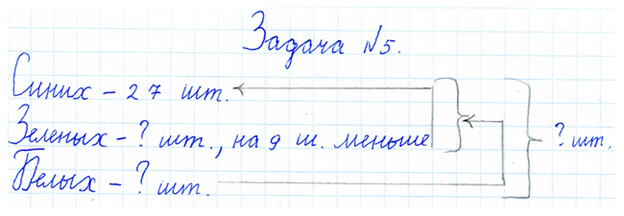 Задача №5.
Синих - 27 шт.
Зеленых - ? шт., на 9 ш. меньше
Белых - ? шт.
? шт.